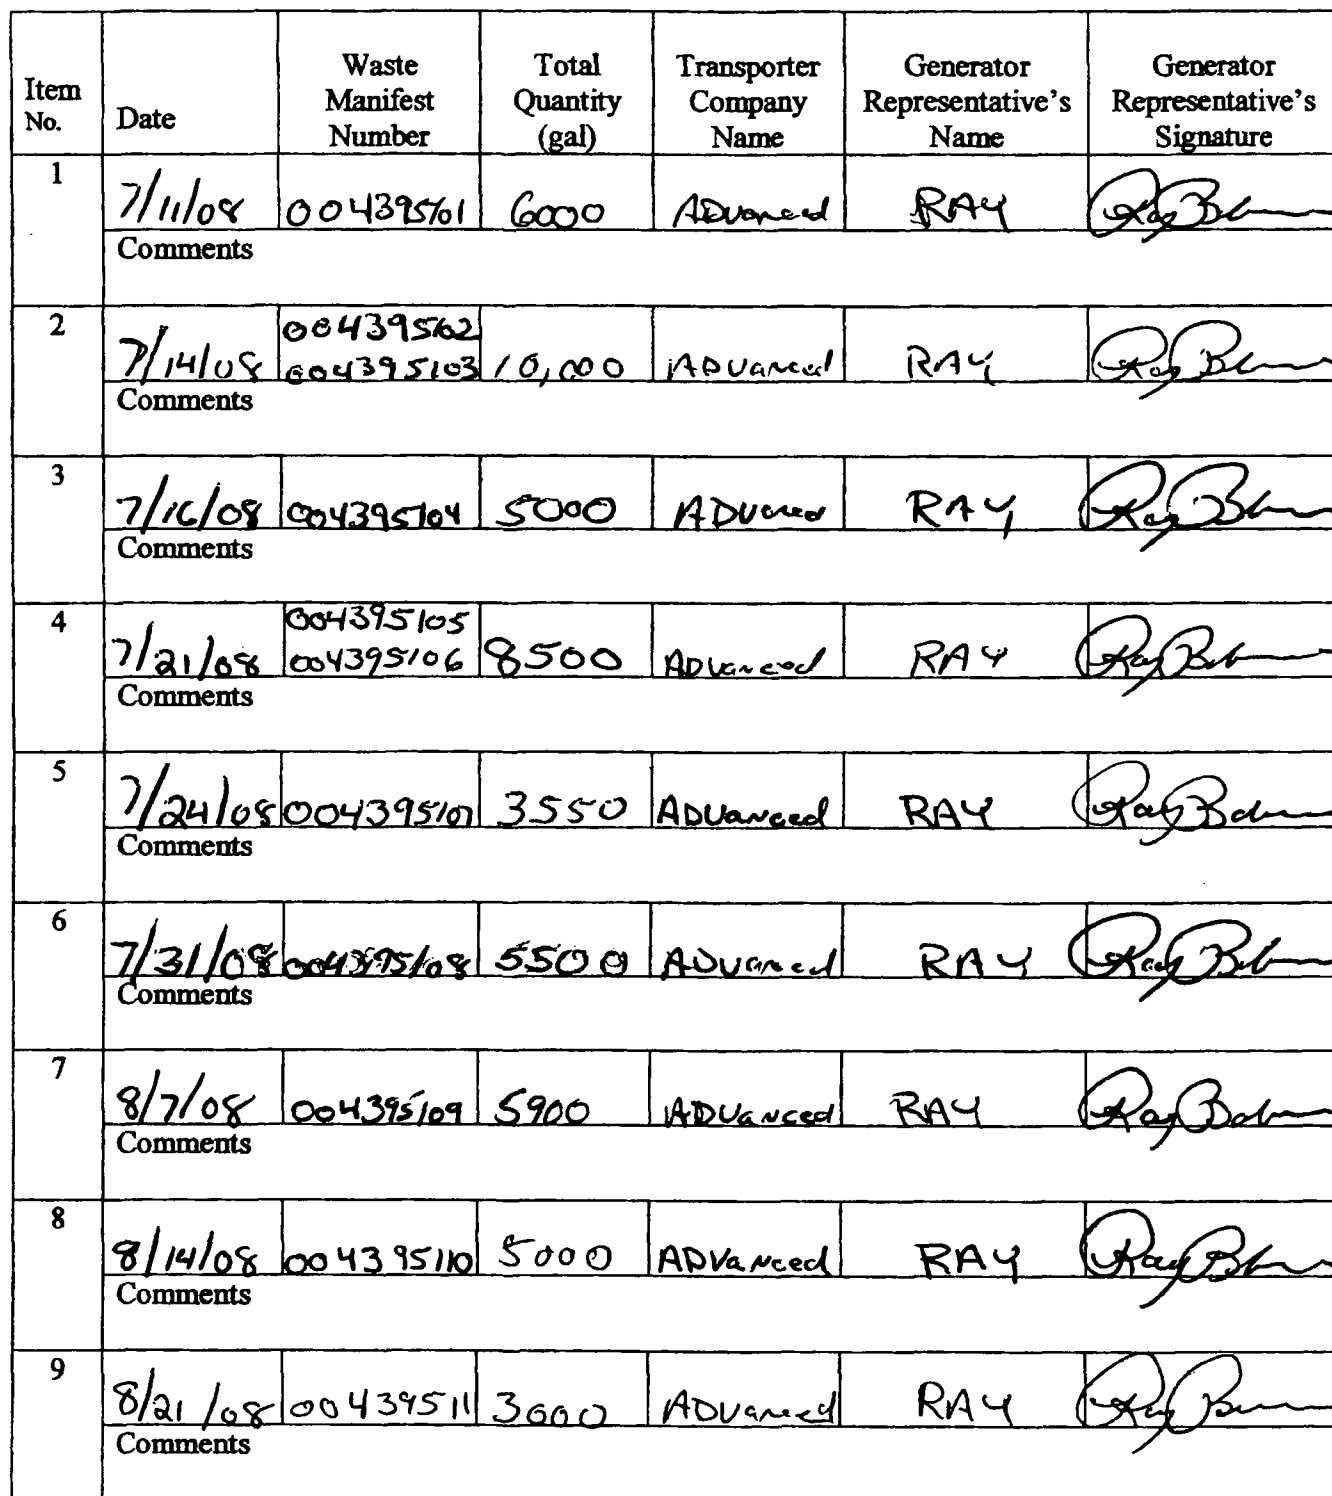 Item No. Date Waste Manifest Number Total Quantity (gal) Transporter Company Name Generator Representative's Name Generator Representative's Signature
1 7/11/08 004395101 6000 ADvanced RAY
Comments
2 7/14/08 004395102 004395103 10,000 ADvanced RAY
Comments
3 7/16/08 004395104 5000 ADvanced RAY
Comments
4 7/21/08 004395105 004395106 8500 ADvanced RAY
Comments
5 7/24/08 004395107 3550 ADvanced RAY
Comments
6 7/31/08 004395108 5500 ADvanced RAY
Comments
7 8/7/08 004395109 5900 ADvanced RAY
Comments
8 8/14/08 004395110 5000 ADvanced RAY
Comments
9 8/21/08 00439511 3000 ADvanced RAY
Comments